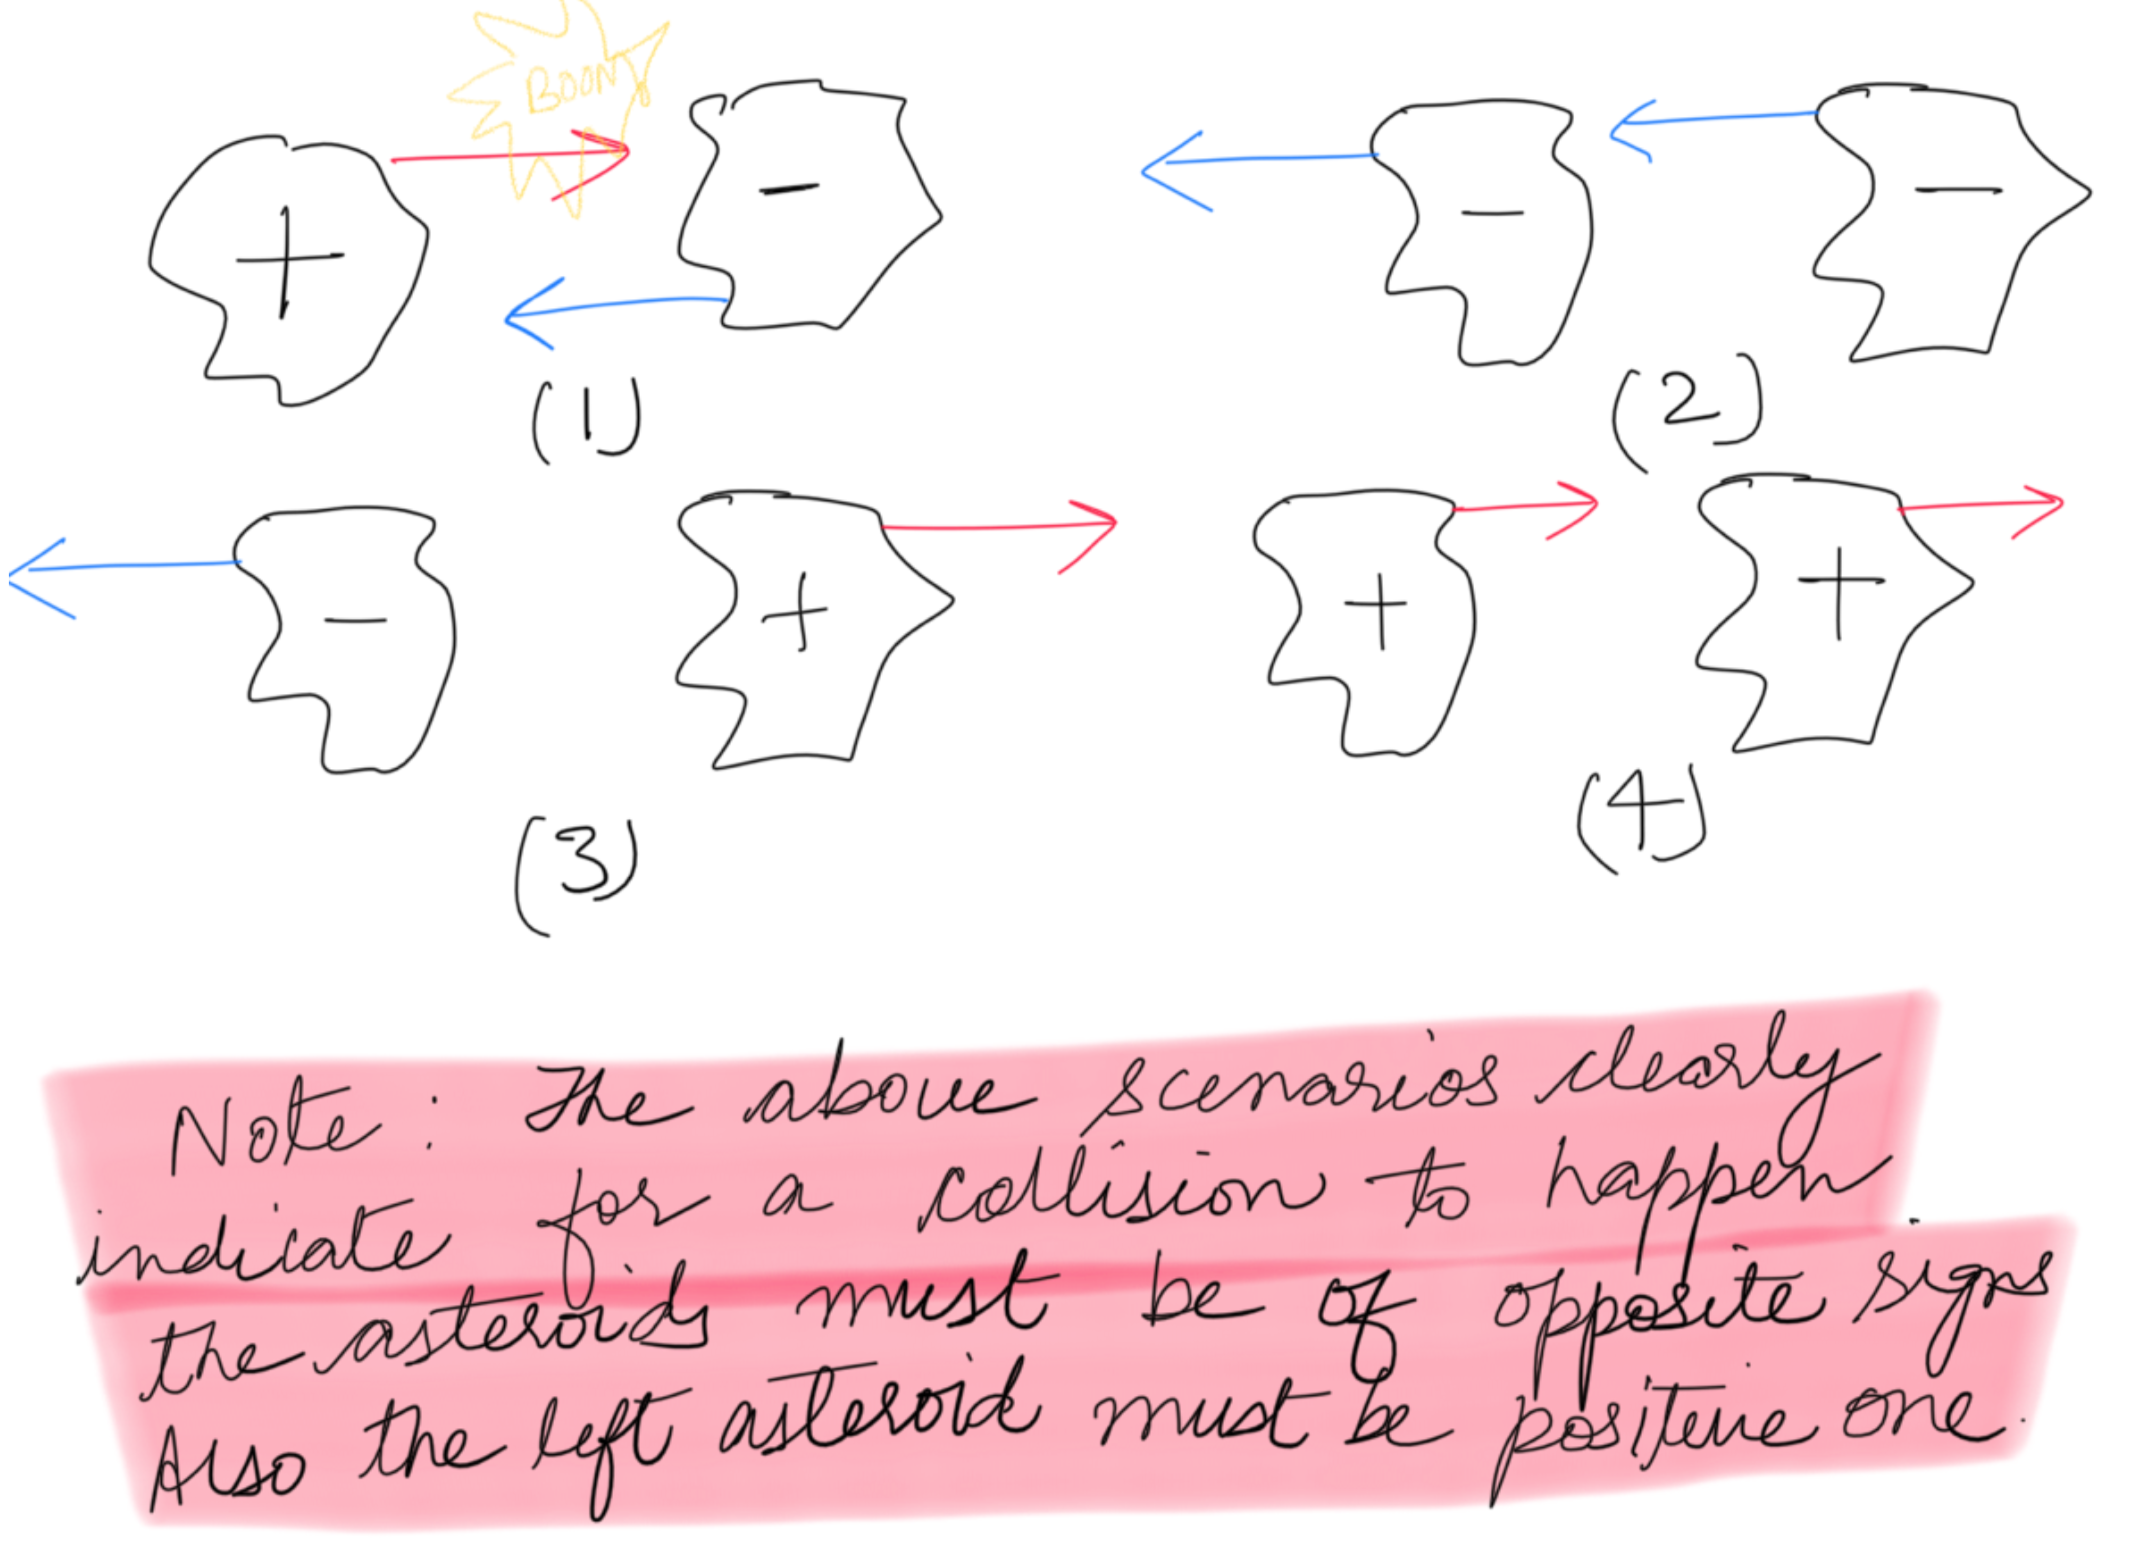 BOOM
+ −
− −
(1)
(2)
− +
+ +
(3)
(4)
Note : The above scenarios clearly
indicate for a collision to happen
the asteroids must be of opposite signs
Also the left asteroid must be positive one.